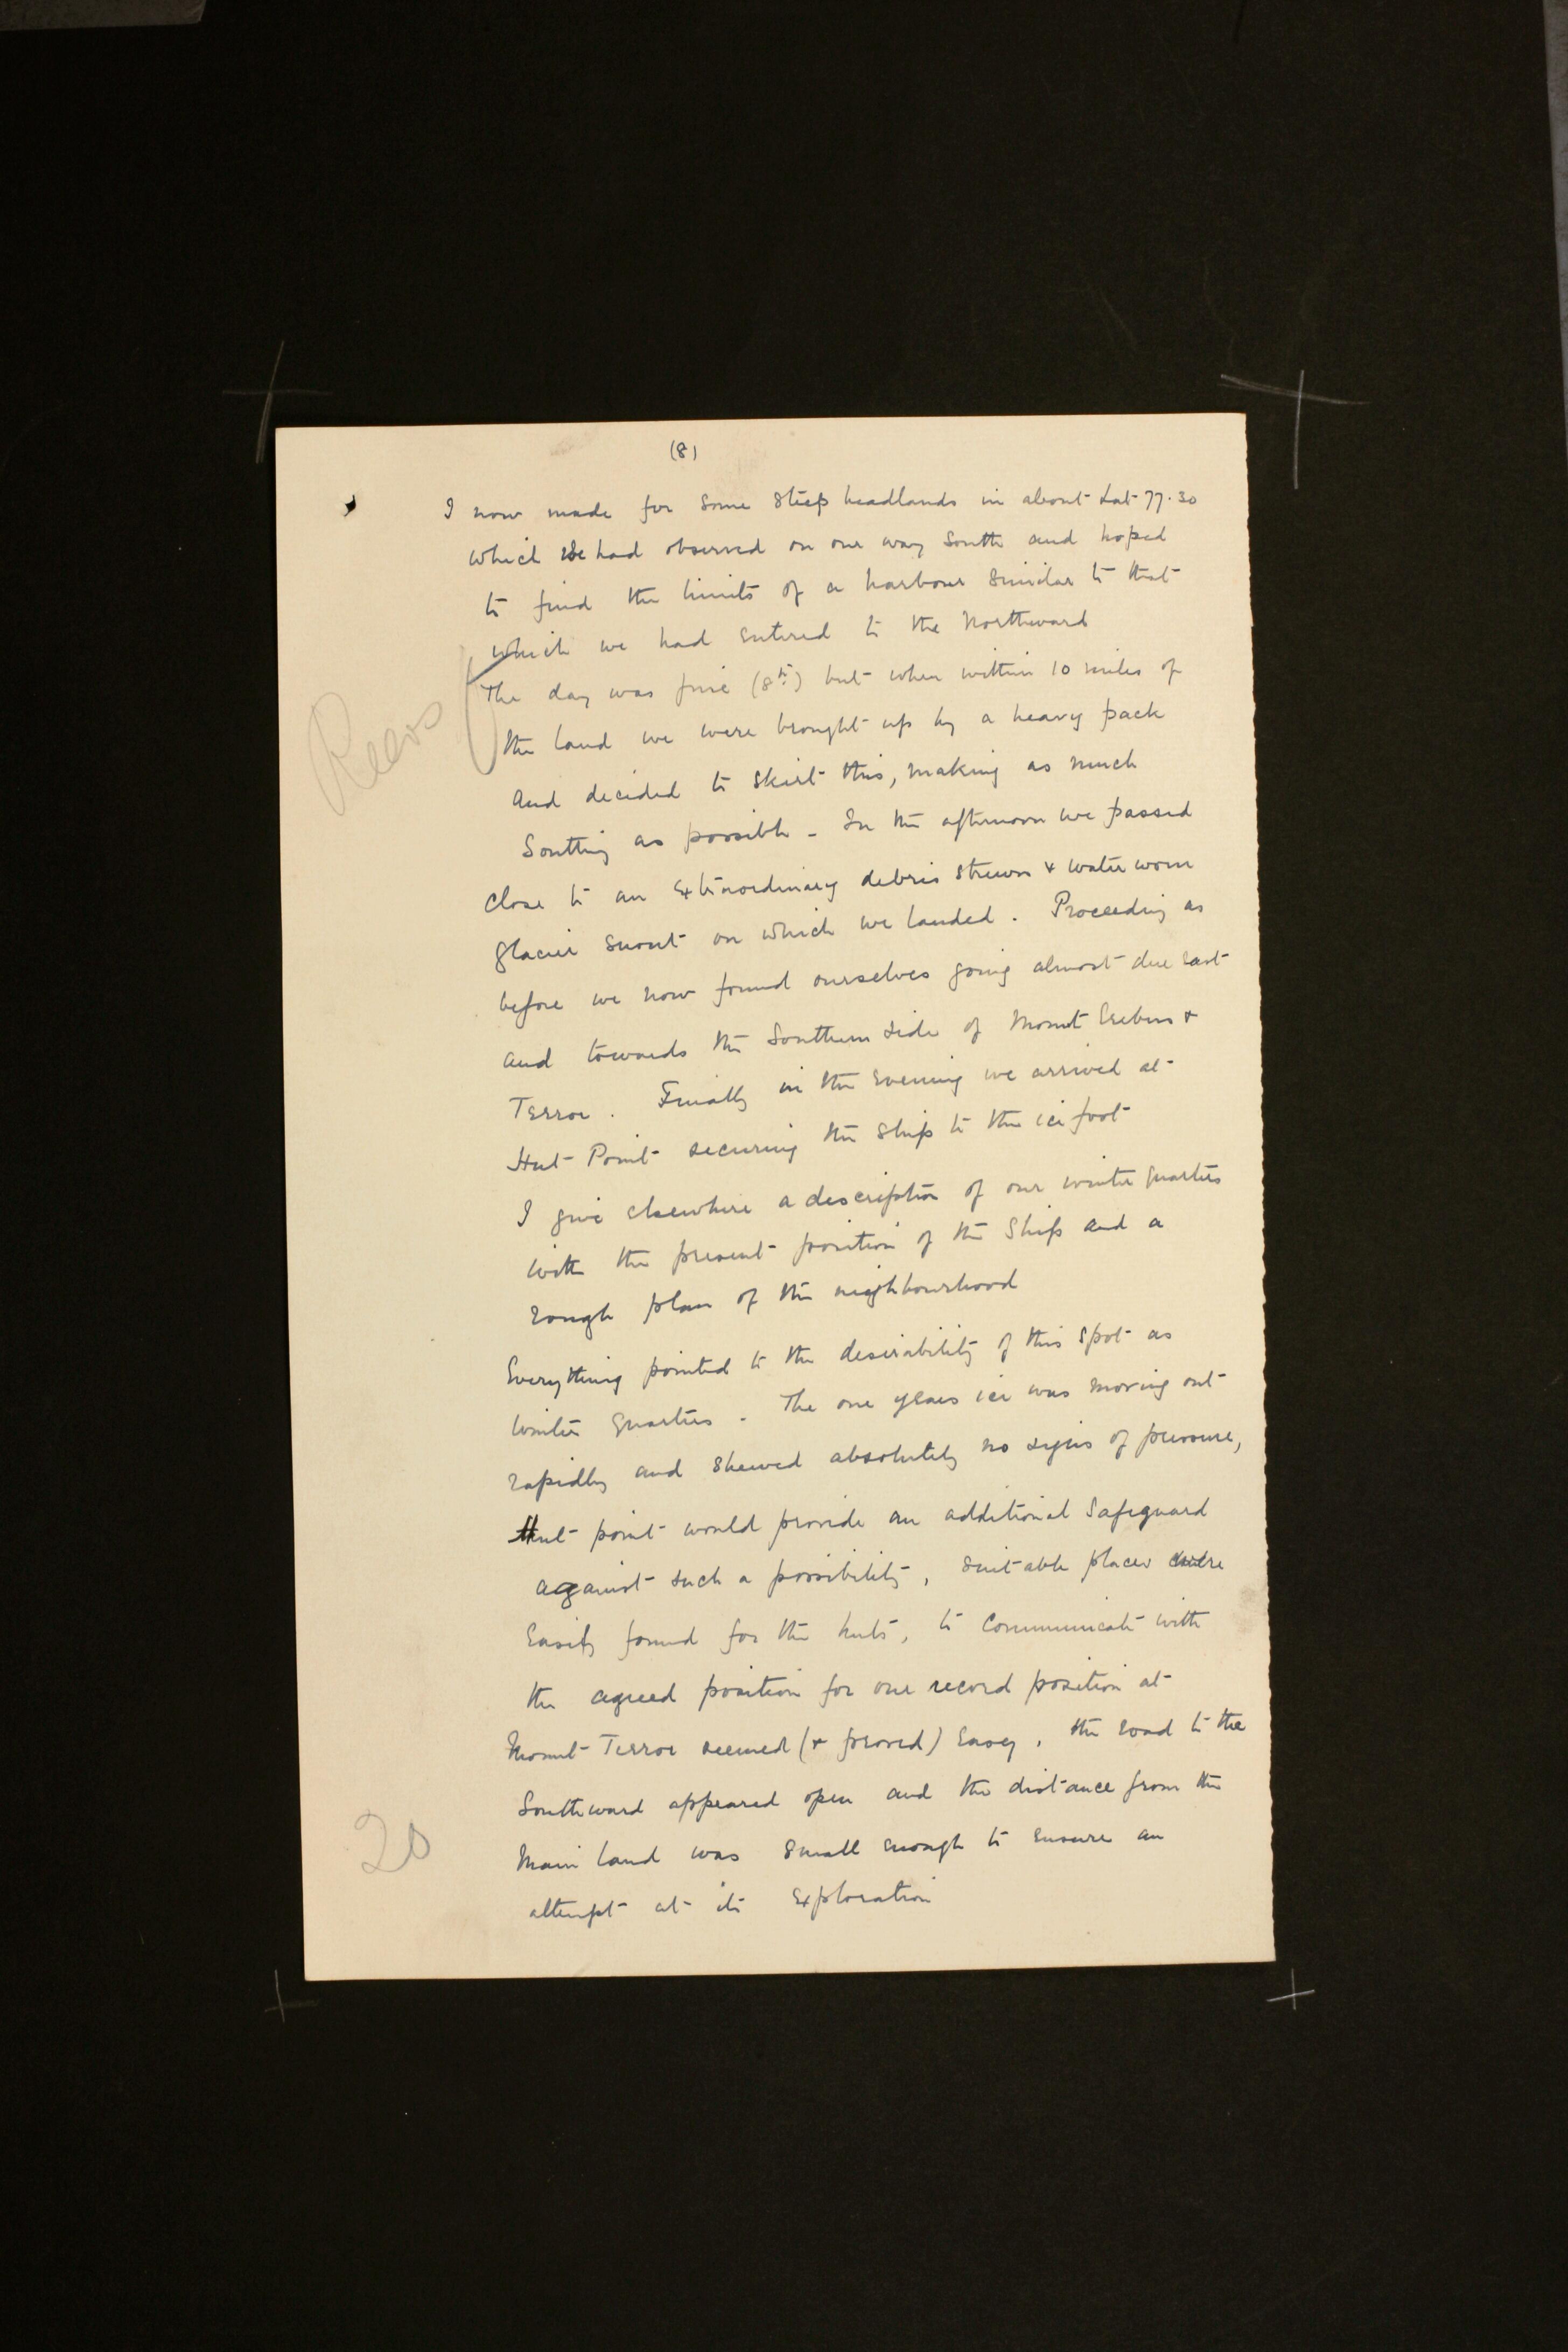 (8)
I now made for some steep headlands in about Lat 77.30
which we had observed on our way South and hoped
to find the limits of a harbour similar to that
which we had entered to the Northward
The day was fine (8th) but when within 10 miles of
the land we were brought up by a heavy pack
and decided to skirt this, making as much
Southing as possible - In the afternoon we passed
close to an extraordinary debris strewn & water worn
glacier snout on which we landed. Proceeding as
before we now found ourselves going almost due east
and towards the Southern side of Mount Erebus &
Terror. Finally in the evening we arrived at
Hut Point securing the ship to the ice foot
I give elsewhere a description of our winter quarters
with the present position of the Ship and a
rough plan of the neighbourhood
Everything pointed to the desirability of this spot as
winter quarters - The one years ice was moving out
rapidly and shewed absolutely no signs of pressure,
Hut point would provide an additional safeguard
against such a possibility, suitable places were
easily found for the huts, to communicate with
the agreed position for our record position at
Mount Terror seemed (& proved) easy, the road to the
Southward appeared open and the distance from the
Main land was small enough to ensure an
attempt at its exploration
20